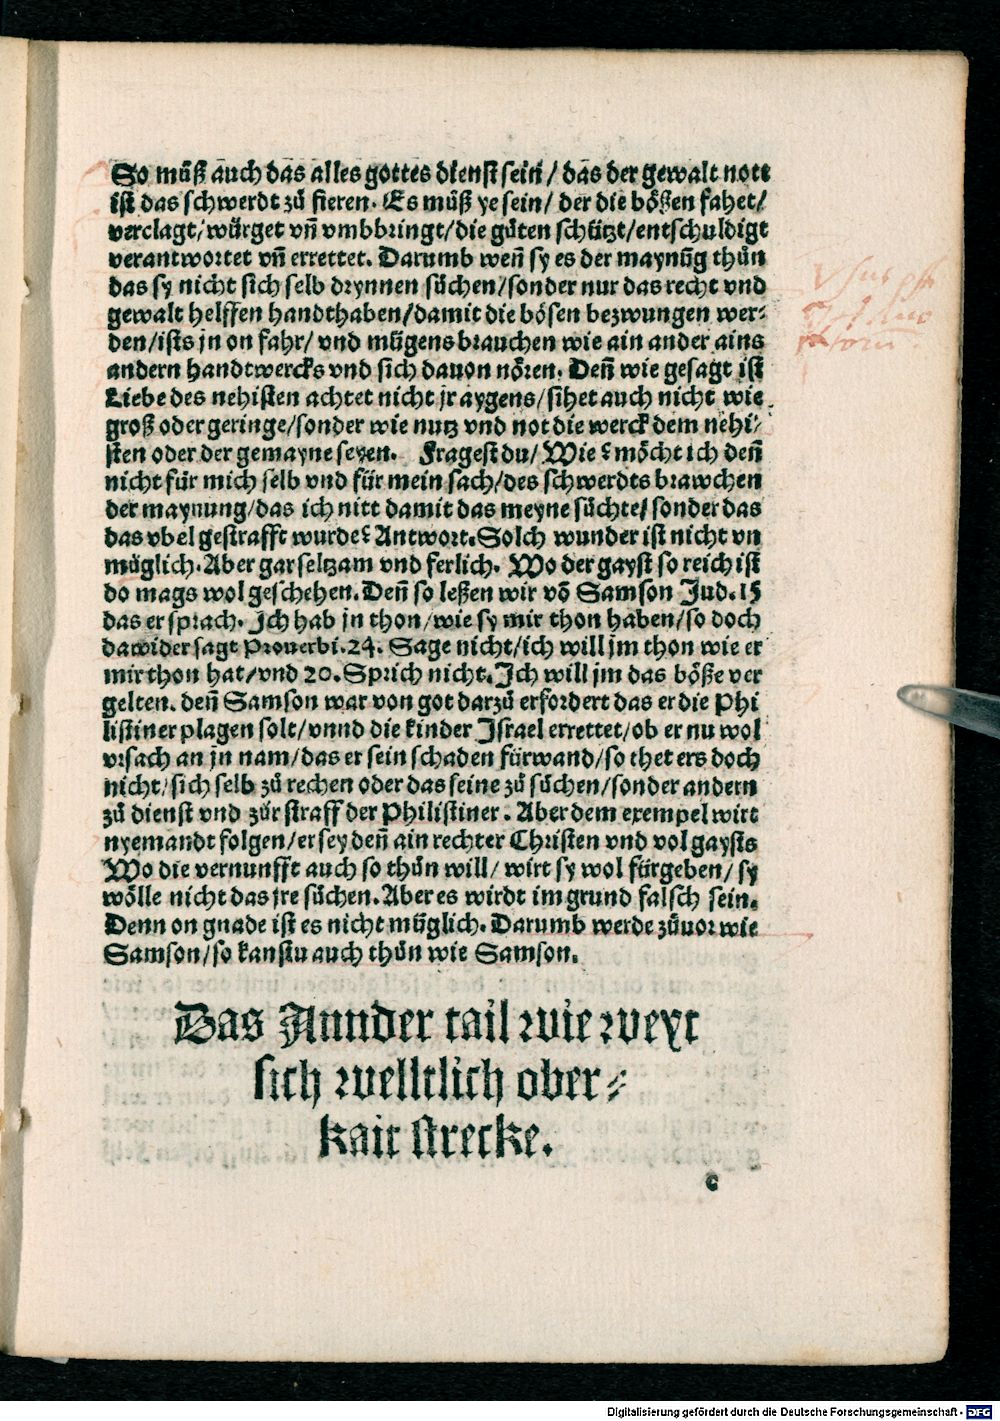 So müß auch das alles gottes dienst sein / das der gewalt nott
ist das schwerdt zů fieren. Es müß ye sein / der die bößen fahet /
verclagt / würget vñ vmbbringt / die gůten schützt / entschuldigt
verantwortet vñ errettet. Darumb weñ sy es der maynũg thůn
das sy nicht sich selb drynnen sůchen / sonder nur das recht vnd
gewalt helffen handthaben / damit die bösen bezwungen wer⸗
den / ists jn on fahr / vnd mügens brauchen wie ain ander ains
andern handtwercks vnd sich dauon nören. Deñ wie gesagt ist
Liebe des nehisten achtet nicht jr aygens / sihet auch nicht wie
groß oder geringe / sonder wie nutz vnd not die werck dem nehi⸗
sten oder der gemayne seyen. Fragest du / Wie? möcht ich deñ
nicht für mich selb vnd für mein sach / des schwerdts brawchen
der maynung / das ich nitt damit das meyne sůchte / sonder das
das vbel gestrafft wurde? Antwort. Solch wunder ist nicht vn
müglich. Aber gar seltzam vnd ferlich. Wo der gayst so reich ist
do mags wol geschehen. Deñ so leßen wir võ Samson Jud. 15
das er sprach. Ich hab jn thon / wie sy mir thon haben / so doch
dawider sagt Prouerbi. 24. Sage nicht / ich will jm thon wie er
mir thon hat / vnd 20. Sprich nicht. Ich will jm das böße ver
gelten. deñ Samson war von got darzů erfordert das er die Phi
listiner plagen solt / vnnd die kinder Israel errettet / ob er nu wol
vrsach an jn nam / das er sein schaden fürwand / so thet ers doch
nicht / sich selb zů rechen oder das seine zů sůchen / sonder andern
zů dienst vnd zůr straff der Philistiner. Aber dem exempel wirt
nyemandt folgen / er sey deñ ain rechter Christen vnd vol gaysts
Wo die vernunfft auch so thůn will / wirt sy wol fürgeben / sy
wölle nicht das jre sůchen. Aber es wirdt im grund falsch sein.
Denn on gnade ist es nicht müglich. Darumb werde zůuor wie
Samson / so kanstu auch thůn wie Samson.
Das Annder tail wie weyt
sich welltlich ober⸗
kait strecke.
c
Digitalisierung gefördert durch die Deutsche Forschungsgemeinschaft - DFG